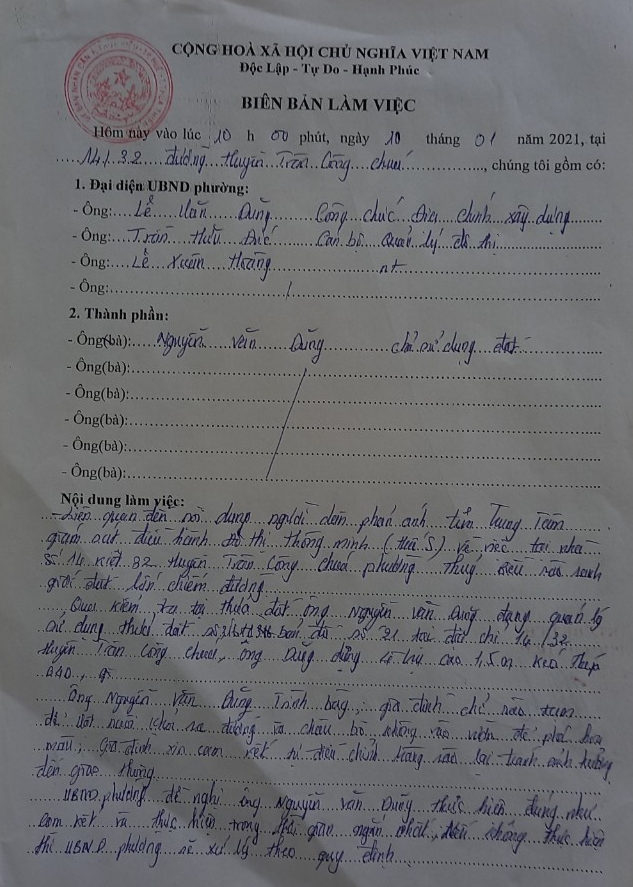 CỘNG HOÀ XÃ HỘI CHỦ NGHĨA VIỆT NAM
Độc Lập - Tự Do - Hạnh Phúc
BIÊN BẢN LÀM VIỆC
Hôm nay vào lúc 10 h 00 phút, ngày 10 tháng 01 năm 2021, tại
14/32 đường Huyền Trân Công chúa, chúng tôi gồm có:
1. Đại diện UBND phường:
- Ông: Lê Văn Dũng Công chức Địa chính xây dựng
- Ông: Trần Hữu Đức Cán bộ Quản lý đô thị
- Ông: Lê Xuân Hoàng nt
- Ông:
2. Thành phần:
- Ông(bà): Nguyễn Văn Dũng chủ sử dụng đất
- Ông(bà):
- Ông(bà):
- Ông(bà):
- Ông(bà):
- Ông(bà):
Nội dung làm việc:
Liên quan đến nội dung người dân phản ánh trên Trung Tâm
giám sát điều hành đô thị thông minh (Hue S) về việc tại nhà
số 14 kiệt 32 Huyền Trân Công chúa phường Thuỷ Biều rào ranh
giới đất lấn chiếm đường
Qua kiểm tra tại thửa đất ông Nguyễn Văn Dũng đang quản lý
sử dụng thuộc đất bản đồ số 21 tại địa chỉ 14/32
Huyền Trân Công chúa, ông Dũng dựng trụ cao 1,5m kéo thép
B40
Ông Nguyễn Văn Dũng Trình bày, gia đình chỉ rào
để vật nuôi khỏi ra đường và trâu bò không vào vườn để phá hoa
màu, gia đình xin cam kết sẽ điều chỉnh hàng rào lại tránh ảnh hưởng
đến giao thông
UBND phường đề nghị ông Nguyễn Văn Dũng thực hiện đúng như
cam kết và thực hiện trong thời gian ngắn nhất, Nếu không thực hiện
thì UBND phường sẽ xử lý theo quy định